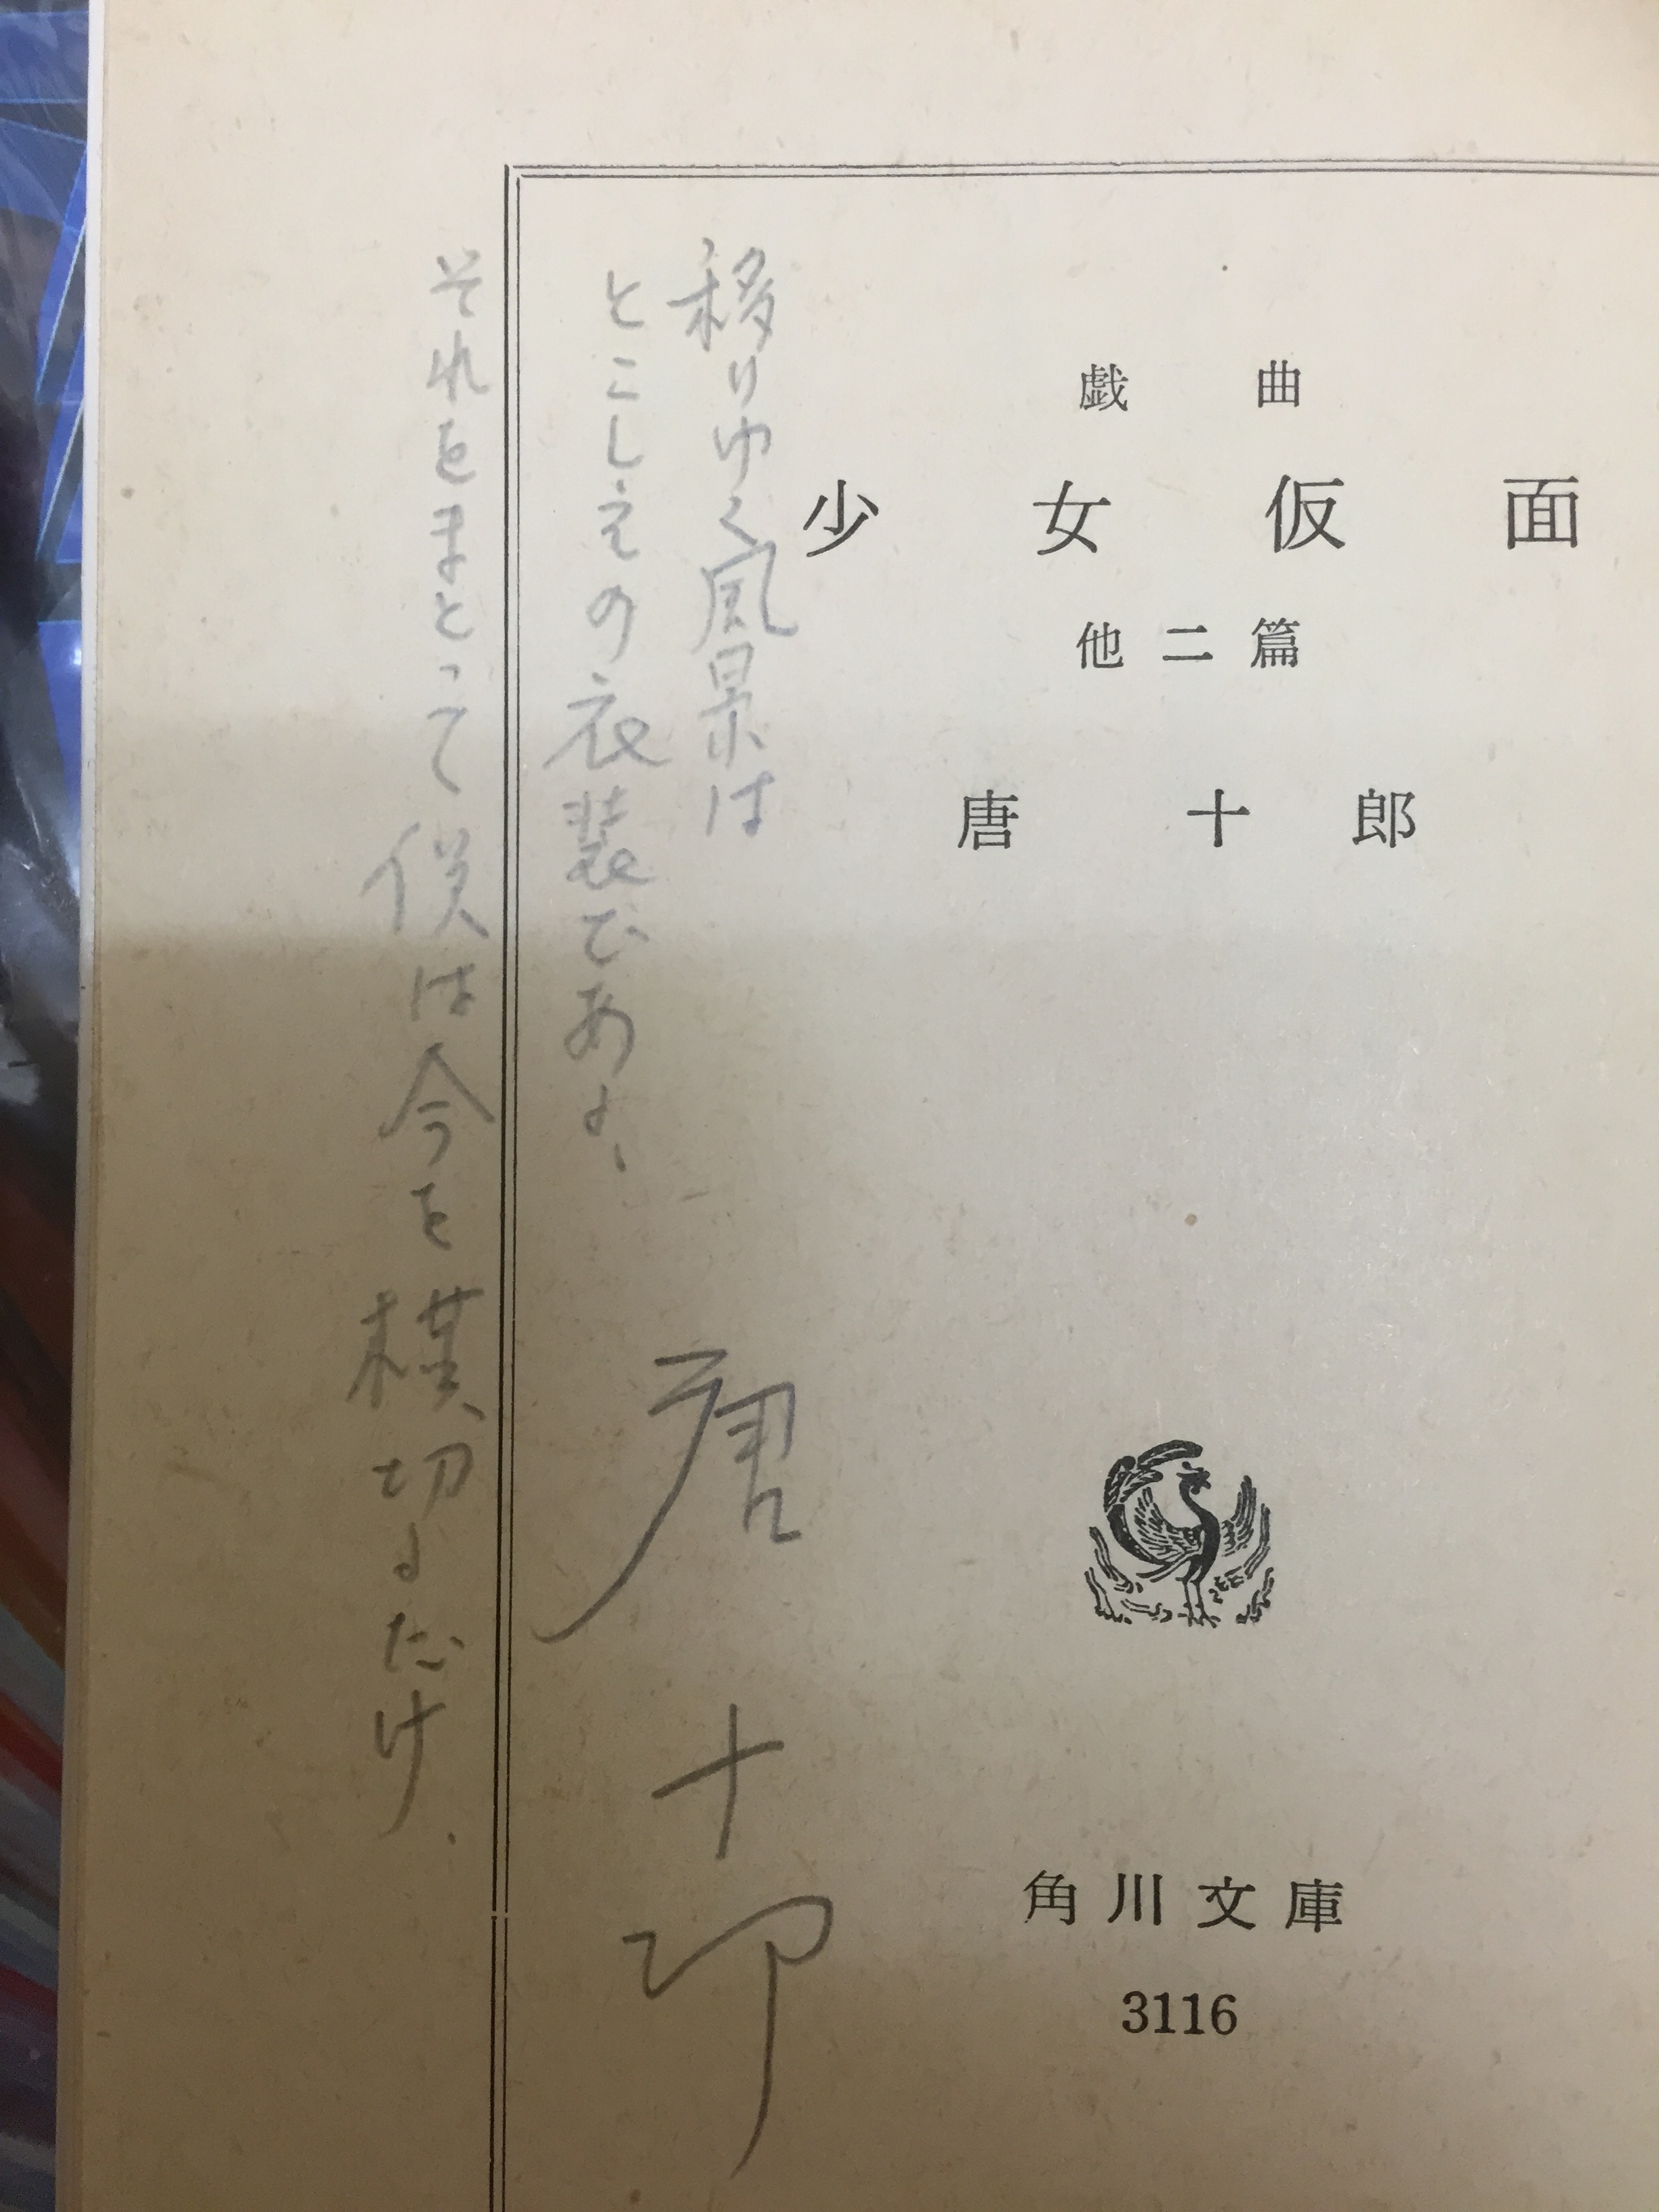 戯曲
少女仮面
他二篇
唐十郎
角川文庫
3116
移りゆく風景は
とこしえの衣装であり、
それをまとって僕は今を横切るだけ.
唐十郎